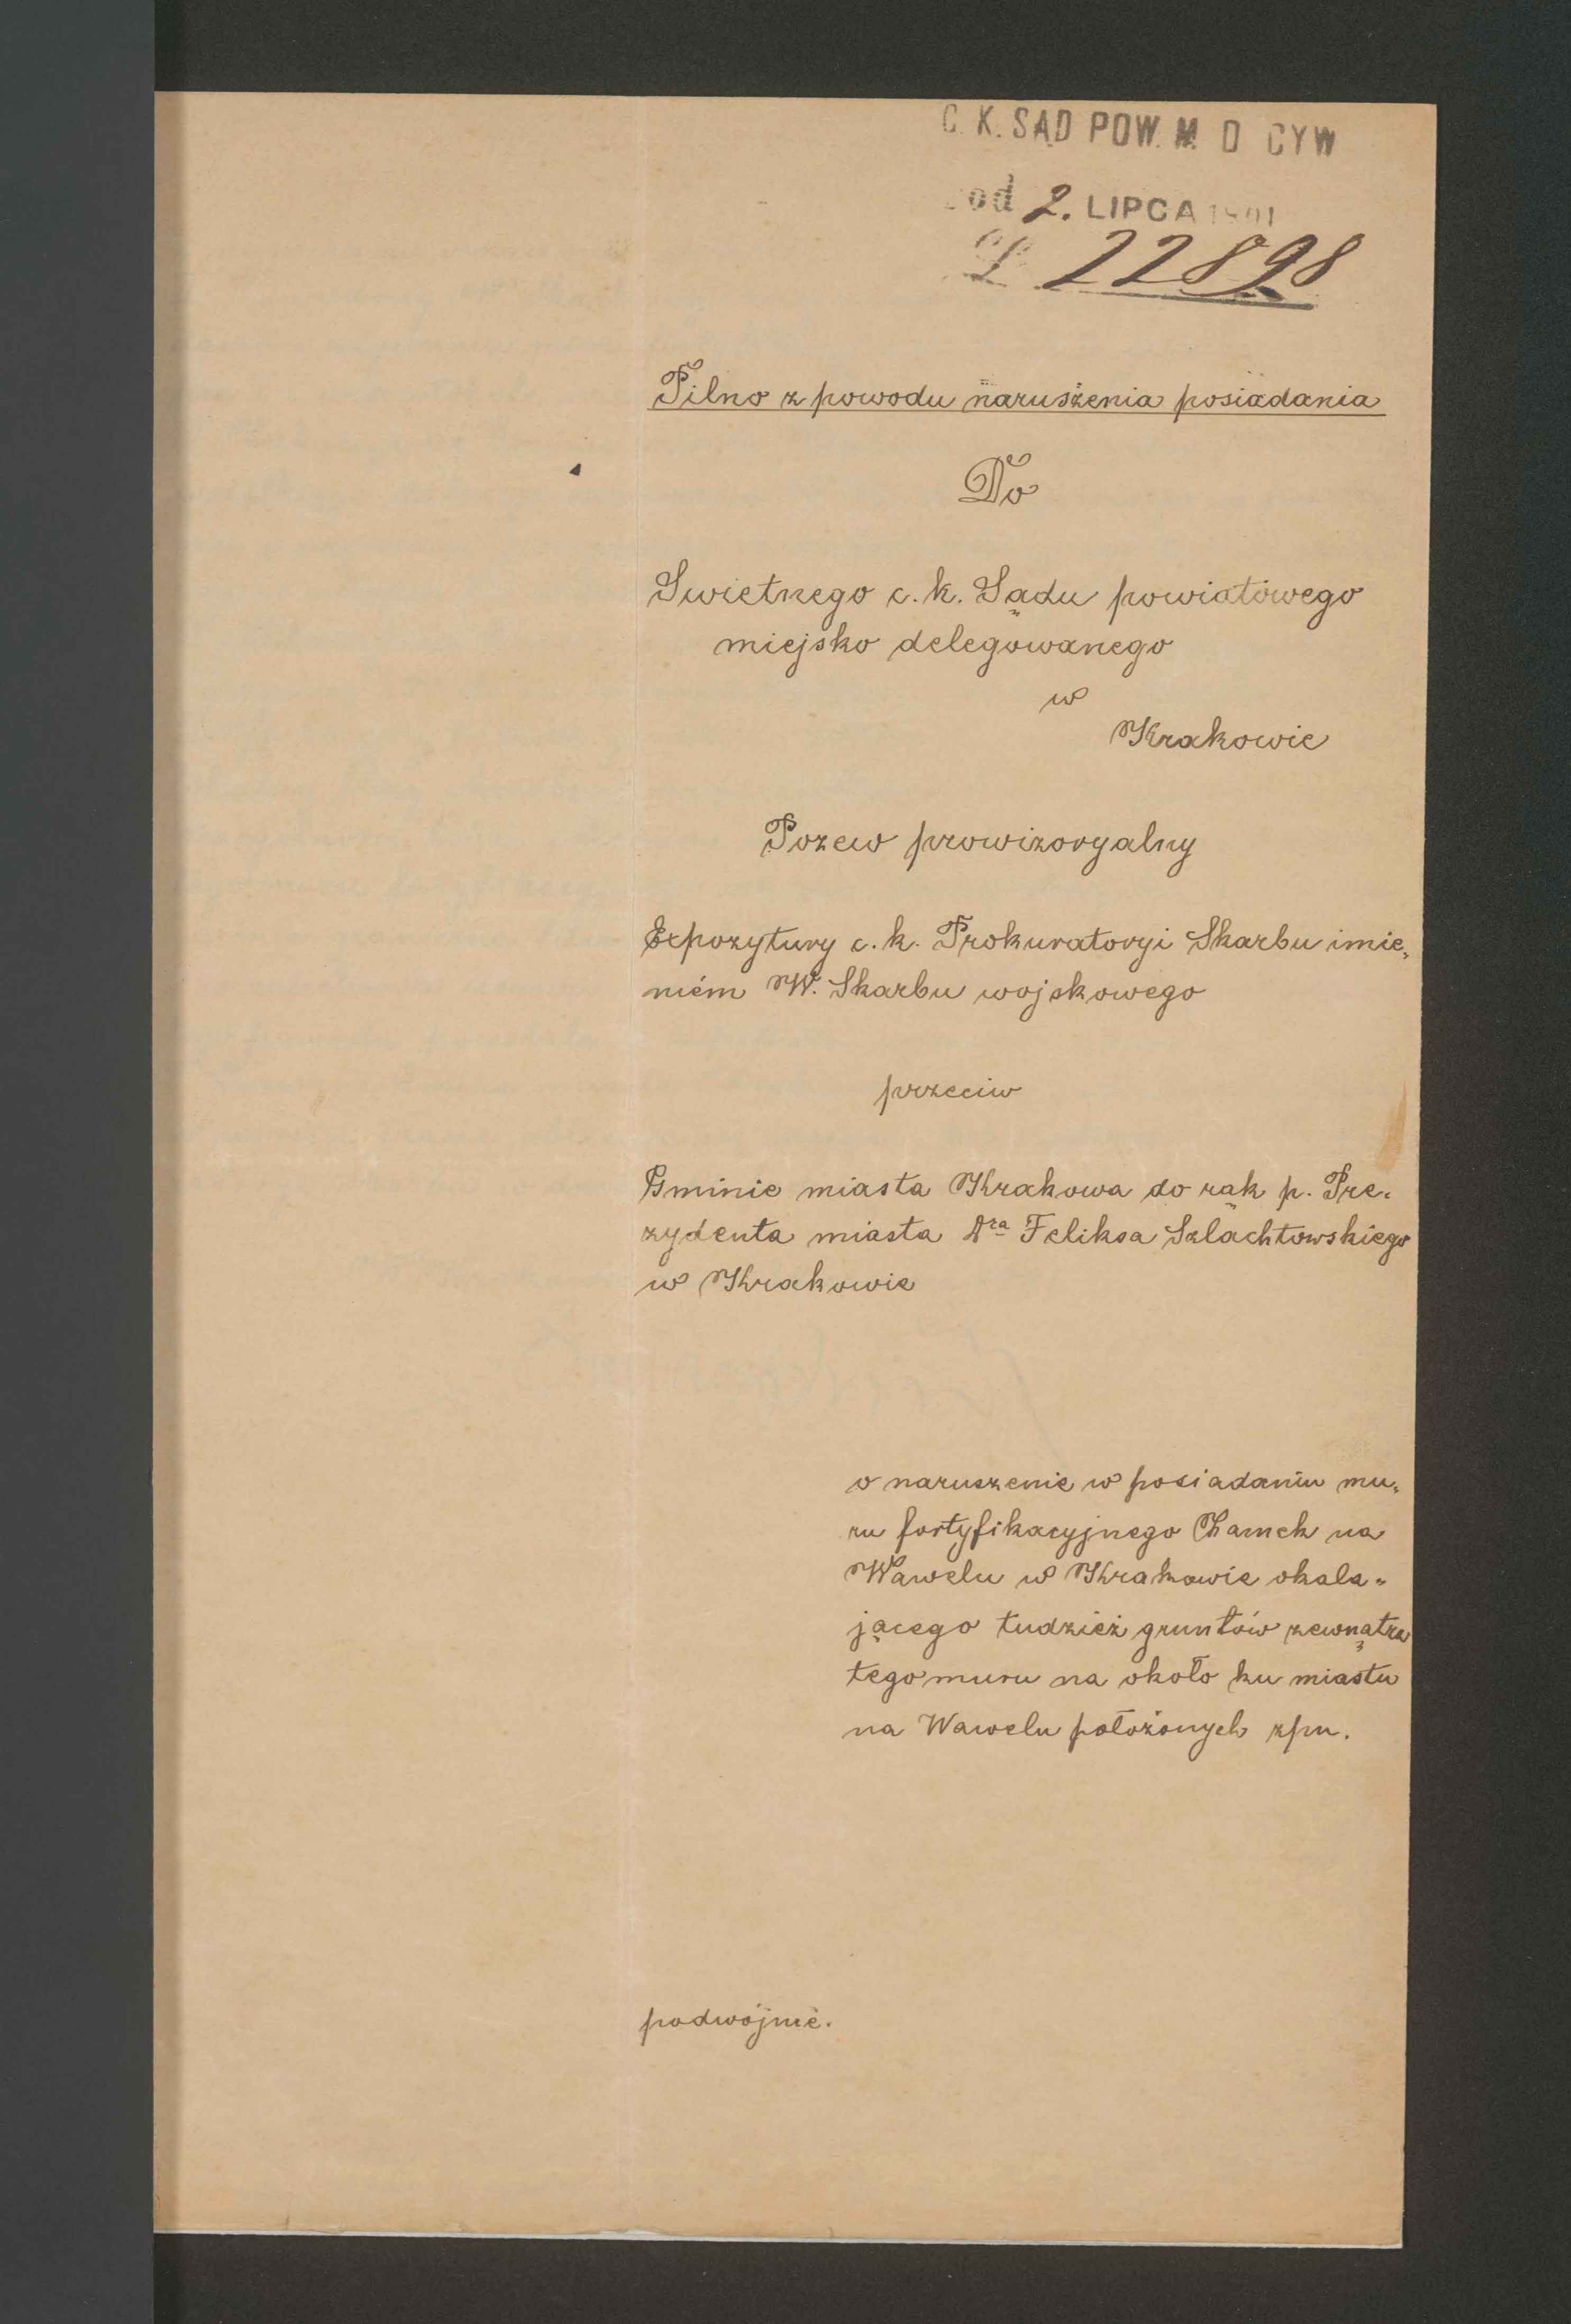 C. K. SĄD POW. M. D CYW
pod 2. LIPCA 1891
L 22898
Pilno z powodu naruszenia posiadania
Do
Swietnego c. k. Sądu powiatówego
miejsko delegowanego
w
Krakowie
Pozew prowizoryalny
Expozytury c. k. Prokuratoryi Skarbu imie„
niém W. Skarbu wojskowego
przeciw
Gminie miasta Krakowa do rąk p. Pre„
zydenta miasta Dra Feliksa Szlachtowskiego
w Krakowie
o naruszenie w posiadaniu mu„
ru fortyfikacyjnego Zamek na
Wawelu w Krakowie okala„
jącego tudzież gruntów zewnątrz
tego muru na około ku miastu
na Wawelu położonych zpn.
podwójnie.